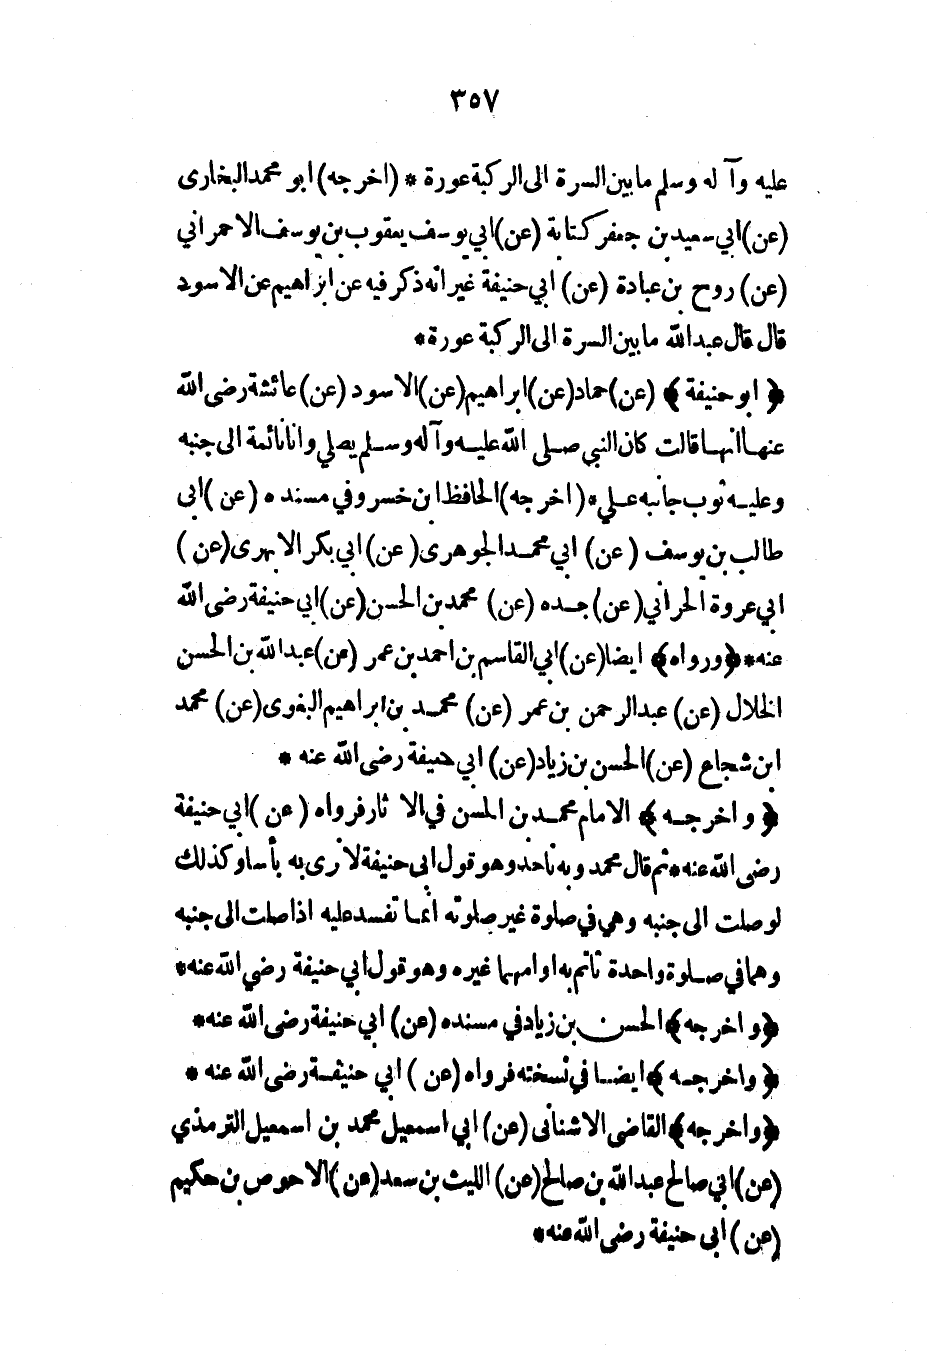 ٣٥٧
عليه وآ له وسلم ما بين السرة الى الركبة عورة * (اخرجه) ابو محمد البخارى
(عن) ابي سعيد بن جعفر كتابة (عن) ابي يوسف يعقوب بن يوسف الاحمراني
(عن) روح بن عبادة (عن) ابي حنيفة غير انه ذكر فيه عن ابراهيم عن الاسود
قال قال عبد الله ما بين السرة الى الركبة عورة *
﴿ ابو حنيفة ﴾ (عن) حماد (عن) ابراهيم (عن) الاسود (عن) عائشة رضى الله
عنها انها قالت كان النبي صلى الله عليه وآ له وسلم يصلي وانا نائمة الى جنبه
وعليه ثوب جانبه علي * (اخرجه) الحافظ ابن خسرو في مسنده (عن) ابى
طالب بن يوسف (عن) ابي محمد الجوهرى (عن) ابي بكر الابهرى (عن)
ابي عروة الحراني (عن) جده (عن) محمد بن الحسن (عن) ابي حنيفة رضى الله
عنه * ﴿ورواه﴾ ايضا (عن) ابي القاسم بن احمد بن عمر (عن) عبد الله بن الحسن
الخلال (عن) عبد الرحمن بن عمر (عن) محمد بن ابراهيم البغوى (عن) محمد
ابن شجاع (عن) الحسن بن زياد (عن) ابي حنيفة رضى الله عنه *
﴿ واخرجه ﴾ الامام محمد بن الحسن في الا ثار فرواه (عن) ابي حنيفة
رضى الله عنه * ثم قال محمد وبه ناخذ وهو قول ابى حنيفة لا نرى به بأسا وكذلك
لو صلت الى جنبه وهي في صلوة غير صلوته انما تفسد عليه اذا صلت الى جنبه
وهما في صلوة واحدة تاتم به او امهما غيره وهو قول ابي حنيفة رضي الله عنه *
﴿واخرجه﴾ الحسن بن زياد في مسنده (عن) ابي حنيفة رضى الله عنه *
﴿ واخرجه ﴾ ايضا في نسخته فرواه (عن) ابي حنيفة رضى الله عنه *
﴿واخرجه﴾ القاضى الاشنانى (عن) ابي اسمعيل محمد بن اسمعيل الترمذي
(عن) ابي صالح عبد الله بن صالح (عن) الليث بن سعد (عن) الاحوص بن حكيم
(عن) ابى حنيفة رضى الله عنه *